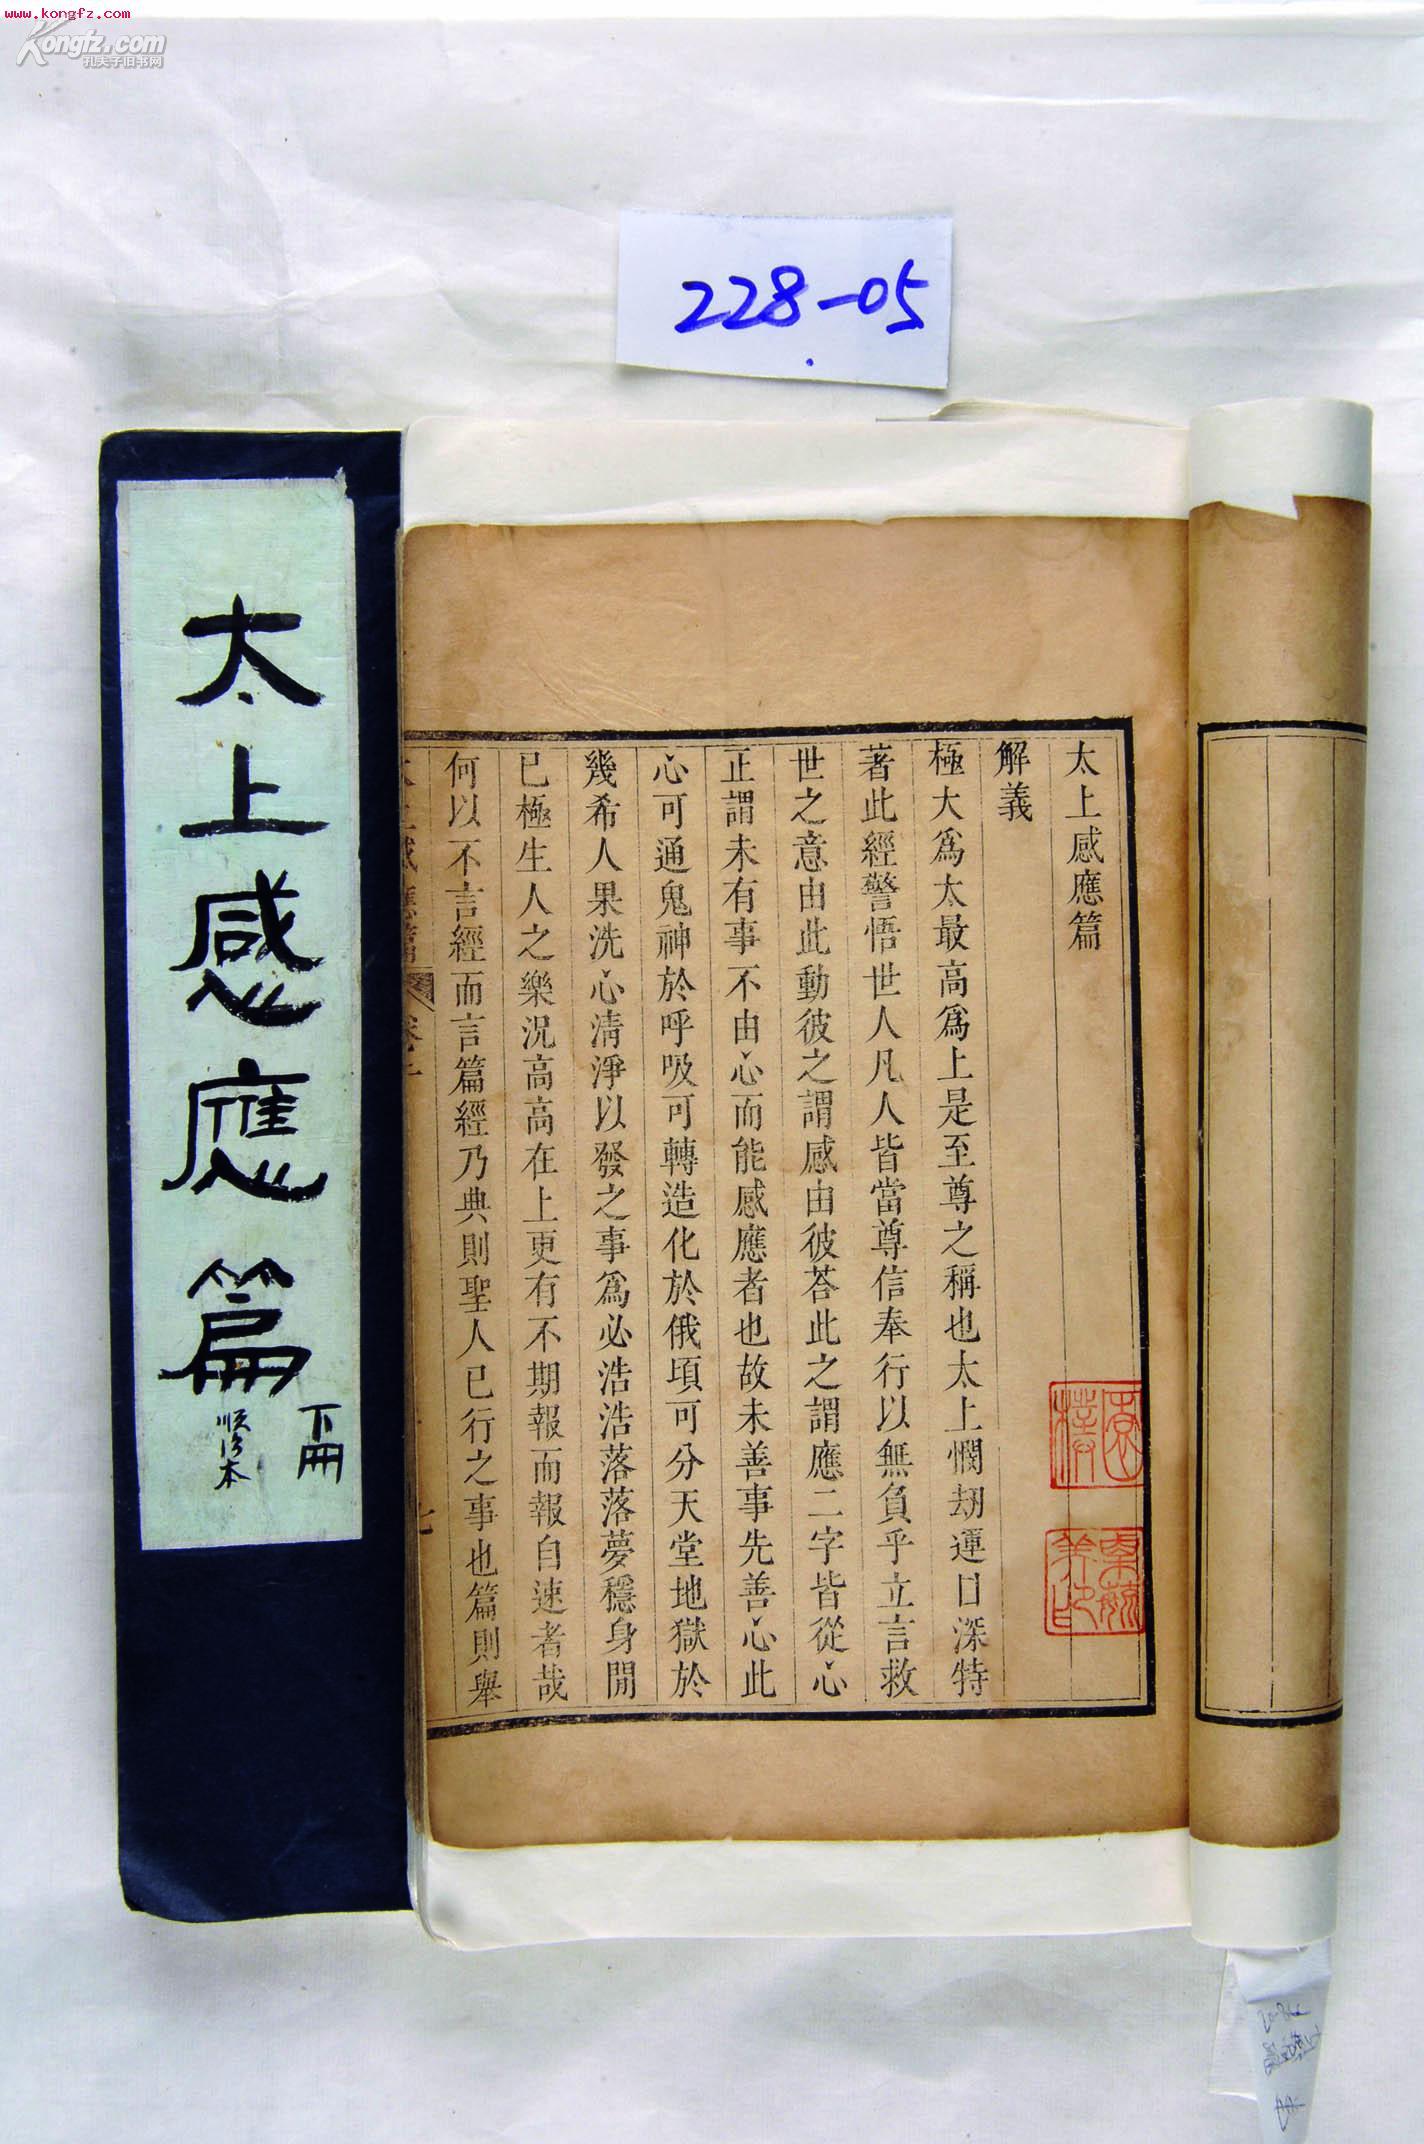 www.kongfz.com
Kongfz.com
孔夫子旧书网
228-05
太上感應篇
解義
極大爲太最高爲上是至尊之稱也太上憫刼運日深特
著此經警悟世人凡人皆當尊信奉行以無負乎立言救
世之意由此動彼之謂感由彼荅此之謂應二字皆從心
正謂未有事不由心而能感應者也故未善事先善心此
心可通鬼神於呼吸可轉造化於俄頃可分天堂地獄於
幾希人果洗心清淨以發之事爲必浩浩落落夢穩身閒
已極生人之樂況高高在上更有不期報而報自速者哉
何以不言經而言篇經乃典則聖人已行之事也篇則舉
太上感應篇
太上感應篇
下冊
順治本